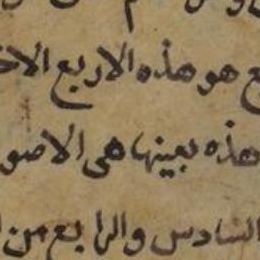 هو هذه الاربع
هذه بعينها هى الاصو
السادس والرابع من